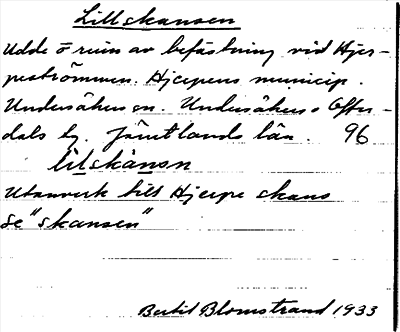 Lillskansen
Udde o ruin av befästning vid Hjer-
peströmmen. Hjerpens municip.
Undersåkers sn. Undersåkers o Offer-
dals tg. Jämtlands län. 96
lìlskànsn
Utanverk till Hjerpe skans
Se "Skansen"
Bertil Blomstrand 1933